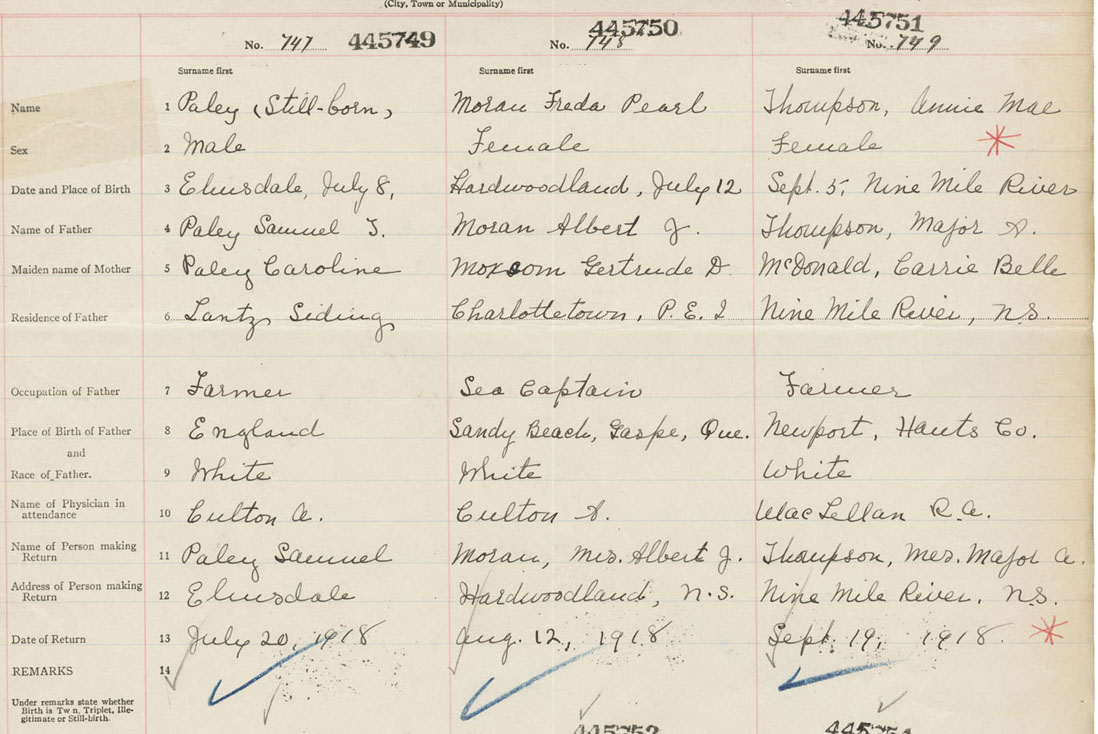 (City, Town or Municipality)
No. 747 445749 No. 748 445750 No. 749 445751
Surname first Surname first Surname first
Name 1 Paley (Still-born) Moran Freda Pearl Thompson, Annie Mae
Sex 2 Male Female Female
Date and Place of Birth 3 Elmsdale, July 8, Hardwoodland, July 12 Sept. 5, Nine Mile River
Name of Father 4 Paley Samuel Moran Albert J. Thompson, Major A.
Maiden name of Mother 5 Paley Caroline Moxsom Gertrude D. McDonald, Carrie Belle
Residence of Father 6 Lantz Siding Charlottetown, P.E.I Nine Mile River, N.S.
Occupation of Father 7 Farmer Sea Captain Farmer
Place of Birth of Father 8 England Sandy Beach, Gaspe, Que. Newport, Hants Co.
and
Race of Father. 9 White White White
Name of Physician in
attendance 10 Culton A. Culton A. MacLellan R.A.
Name of Person making
Return 11 Paley Samuel Moran, Mrs. Albert J. Thompson, Mrs. Major A.
Address of Person making
Return 12 Elmsdale Hardwoodland, N.S. Nine Mile River, N.S.
Date of Return 13 July 20, 1918 Aug. 12, 1918 Sept. 19, 1918
REMARKS 14
Under remarks state whether
Birth is Tw n, Triplet, Ille-
gitimate or Still-birth.
445752